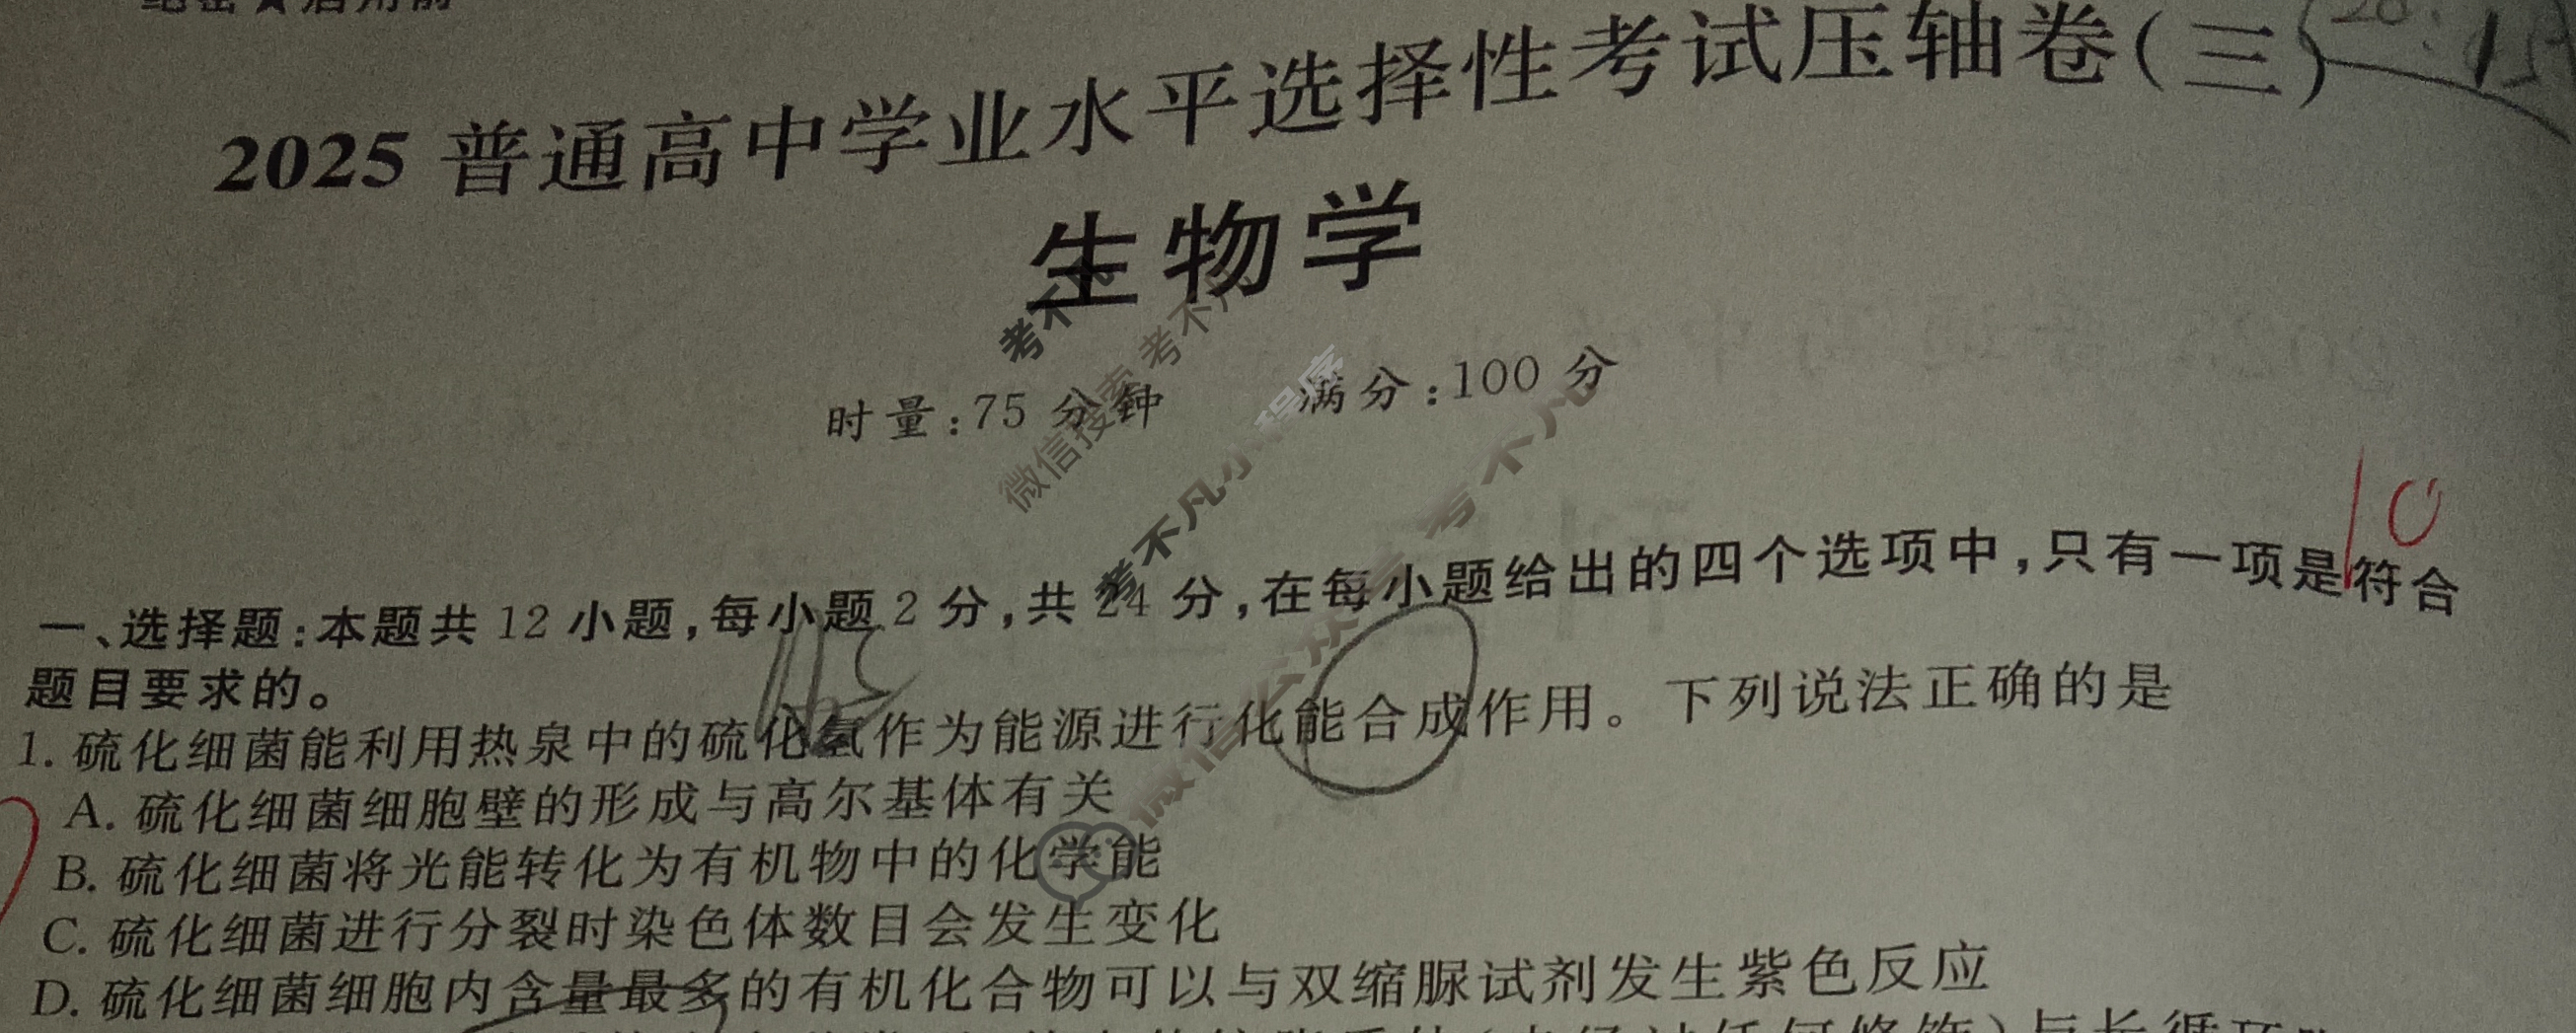 绝密★启用前
2025 普通高中学业水平选择性考试压轴卷(三)
生物学
时量:75 分钟 满分:100 分
10
一、选择题:本题共 12 小题,每小题 2 分,共 24 分,在每小题给出的四个选项中,只有一项是符合
题目要求的。
1. 硫化细菌能利用热泉中的硫化氢作为能源进行化能合成作用。下列说法正确的是
A. 硫化细菌细胞壁的形成与高尔基体有关
B. 硫化细菌将光能转化为有机物中的化学能
C. 硫化细菌进行分裂时染色体数目会发生变化
D. 硫化细菌细胞内含量最多的有机化合物可以与双缩脲试剂发生紫色反应
考不凡
微信搜索 考不凡
考不凡小程序
微信公众号 考不凡